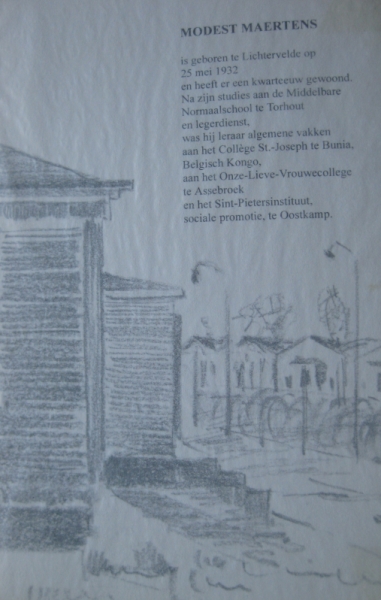 MODEST MAERTENS
is geboren te Lichtervelde op
25 mei 1932
en heeft er een kwarteeuw gewoond.
Na zijn studies aan de Middelbare
Normaalschool te Torhout
en legerdienst,
was hij leraar algemene vakken
aan het Collège St.-Joseph te Bunia,
Belgisch Kongo,
aan het Onze-Lieve-Vrouwecollege
te Assebroek
en het Sint-Pietersinstituut,
sociale promotie, te Oostkamp.